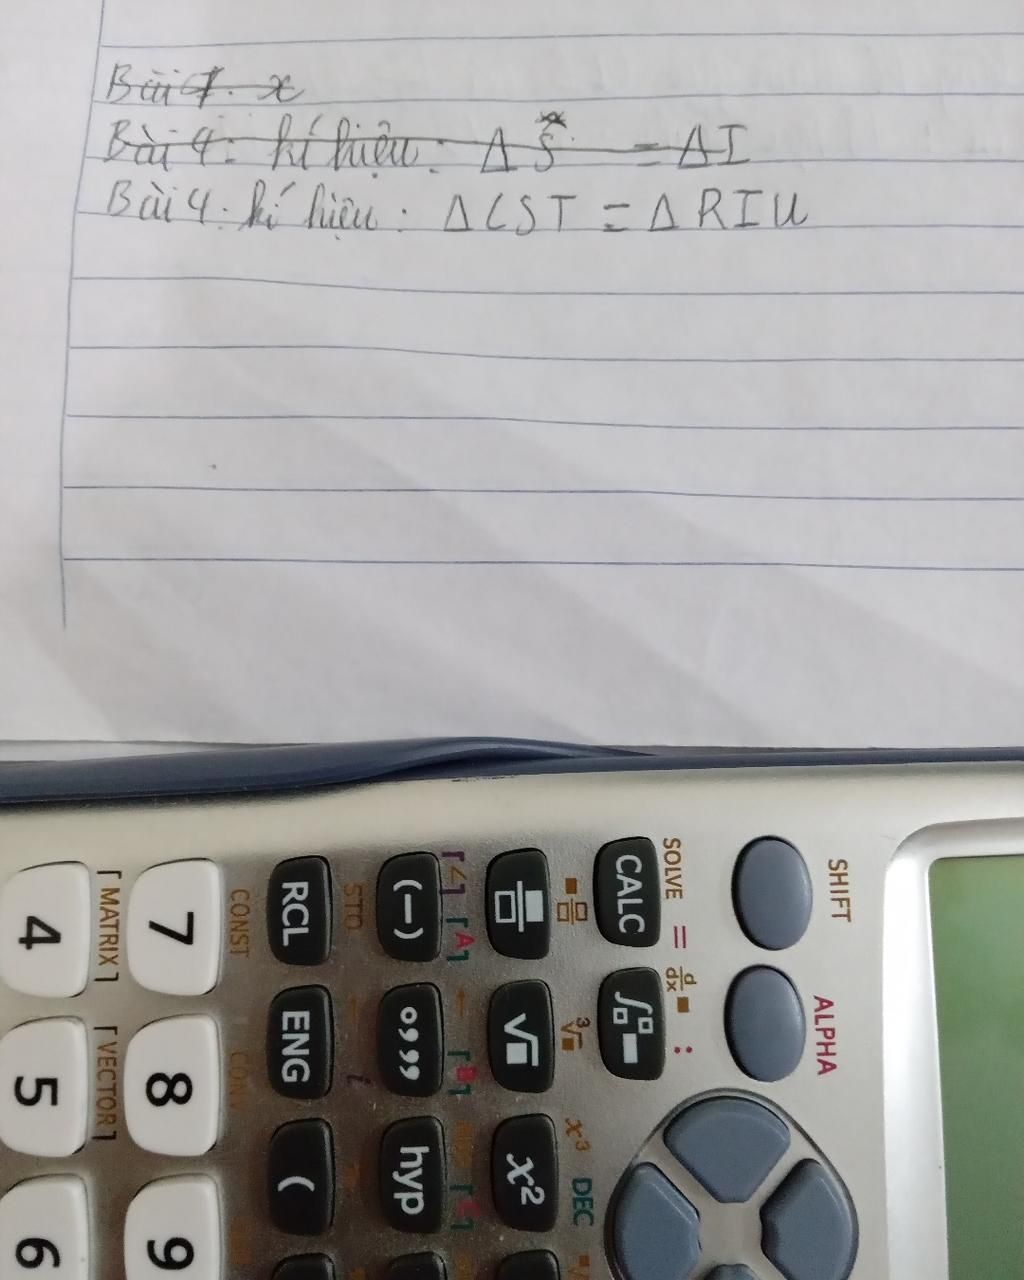 Bài 1. x
Bài 4: kí hiệu: Δ S = Δ I
Bài 4: kí hiệu: Δ CST = Δ RIU
SHIFT
ALPHA
SOLVE =
d/dx :
CALC
∫
x³ DEC
³√
√
x²
∠ A
(−)
B
°,,,
hyp
C
STO
RCL
ENG
i
(
CONST
CONV
7
8
9
MATRIX
VECTOR
4
5
6